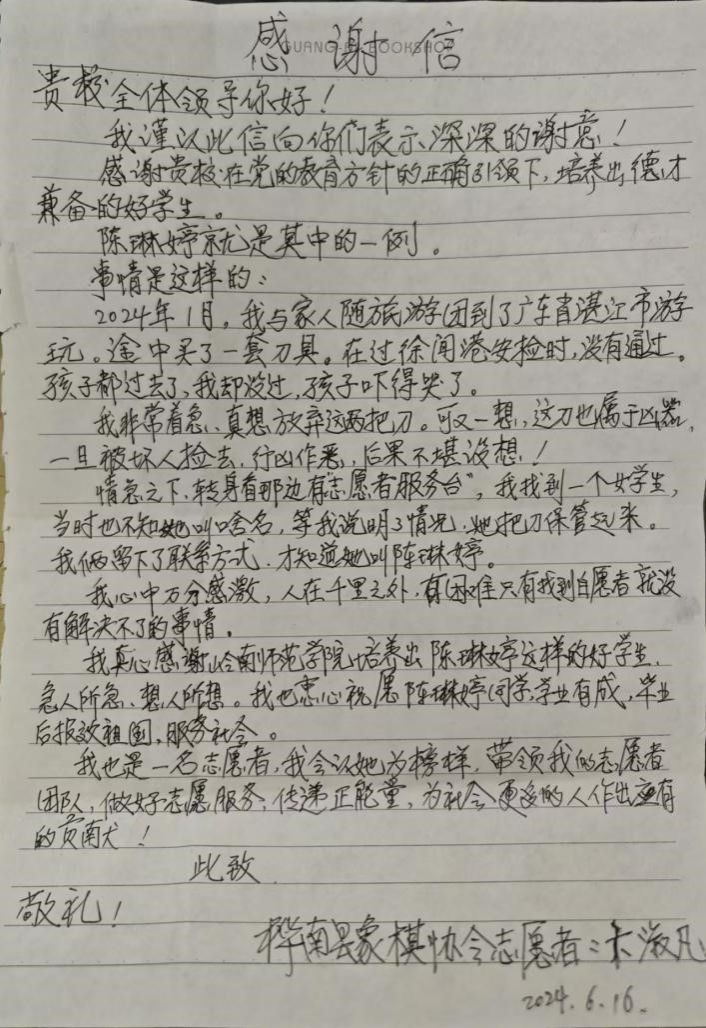 感谢信
GUANG
BOOKSHOP
贵校全体领导你好！
我谨以此信向你们表示深深的谢意！
感谢贵校在党的教育方针的正确引领下，培养出德才
兼备的好学生。
陈琳婷就是其中的一例。
事情是这样的：
2024年1月，我与家人随旅游团到了广东省湛江市游
玩。途中买了一套刀具。在过徐闻港安检时，没有通过。
孩子都过去了，我却没过，孩子吓得哭了。
我非常着急，真想放弃这两把刀。可又一想，这刀也属于凶器，
一旦被坏人捡去，行凶作恶，后果不堪设想！
情急之下，转身看那边有“志愿者服务台”，我找到一个女学生，
当时也不知她叫啥名，等我说明了情况，她把刀保管起来。
我俩留下了联系方式，才知道她叫陈琳婷。
我心中万分感激，人在千里之外，有困难只有找到自愿者就没
有解决不了的事情。
我真心感谢岭南师范学院培养出陈琳婷这样的好学生，
急人所急、想人所想。我也衷心祝愿陈琳婷同学学业有成，毕业
后报效祖国，服务社会。
我也是一名志愿者，我会以她为榜样，带领我的志愿者
团队，做好志愿服务，传递正能量，为社会更多的人作出应有
的贡献！
此致
敬礼！
桦南县象棋协会志愿者：淑凡
2024.6.16.